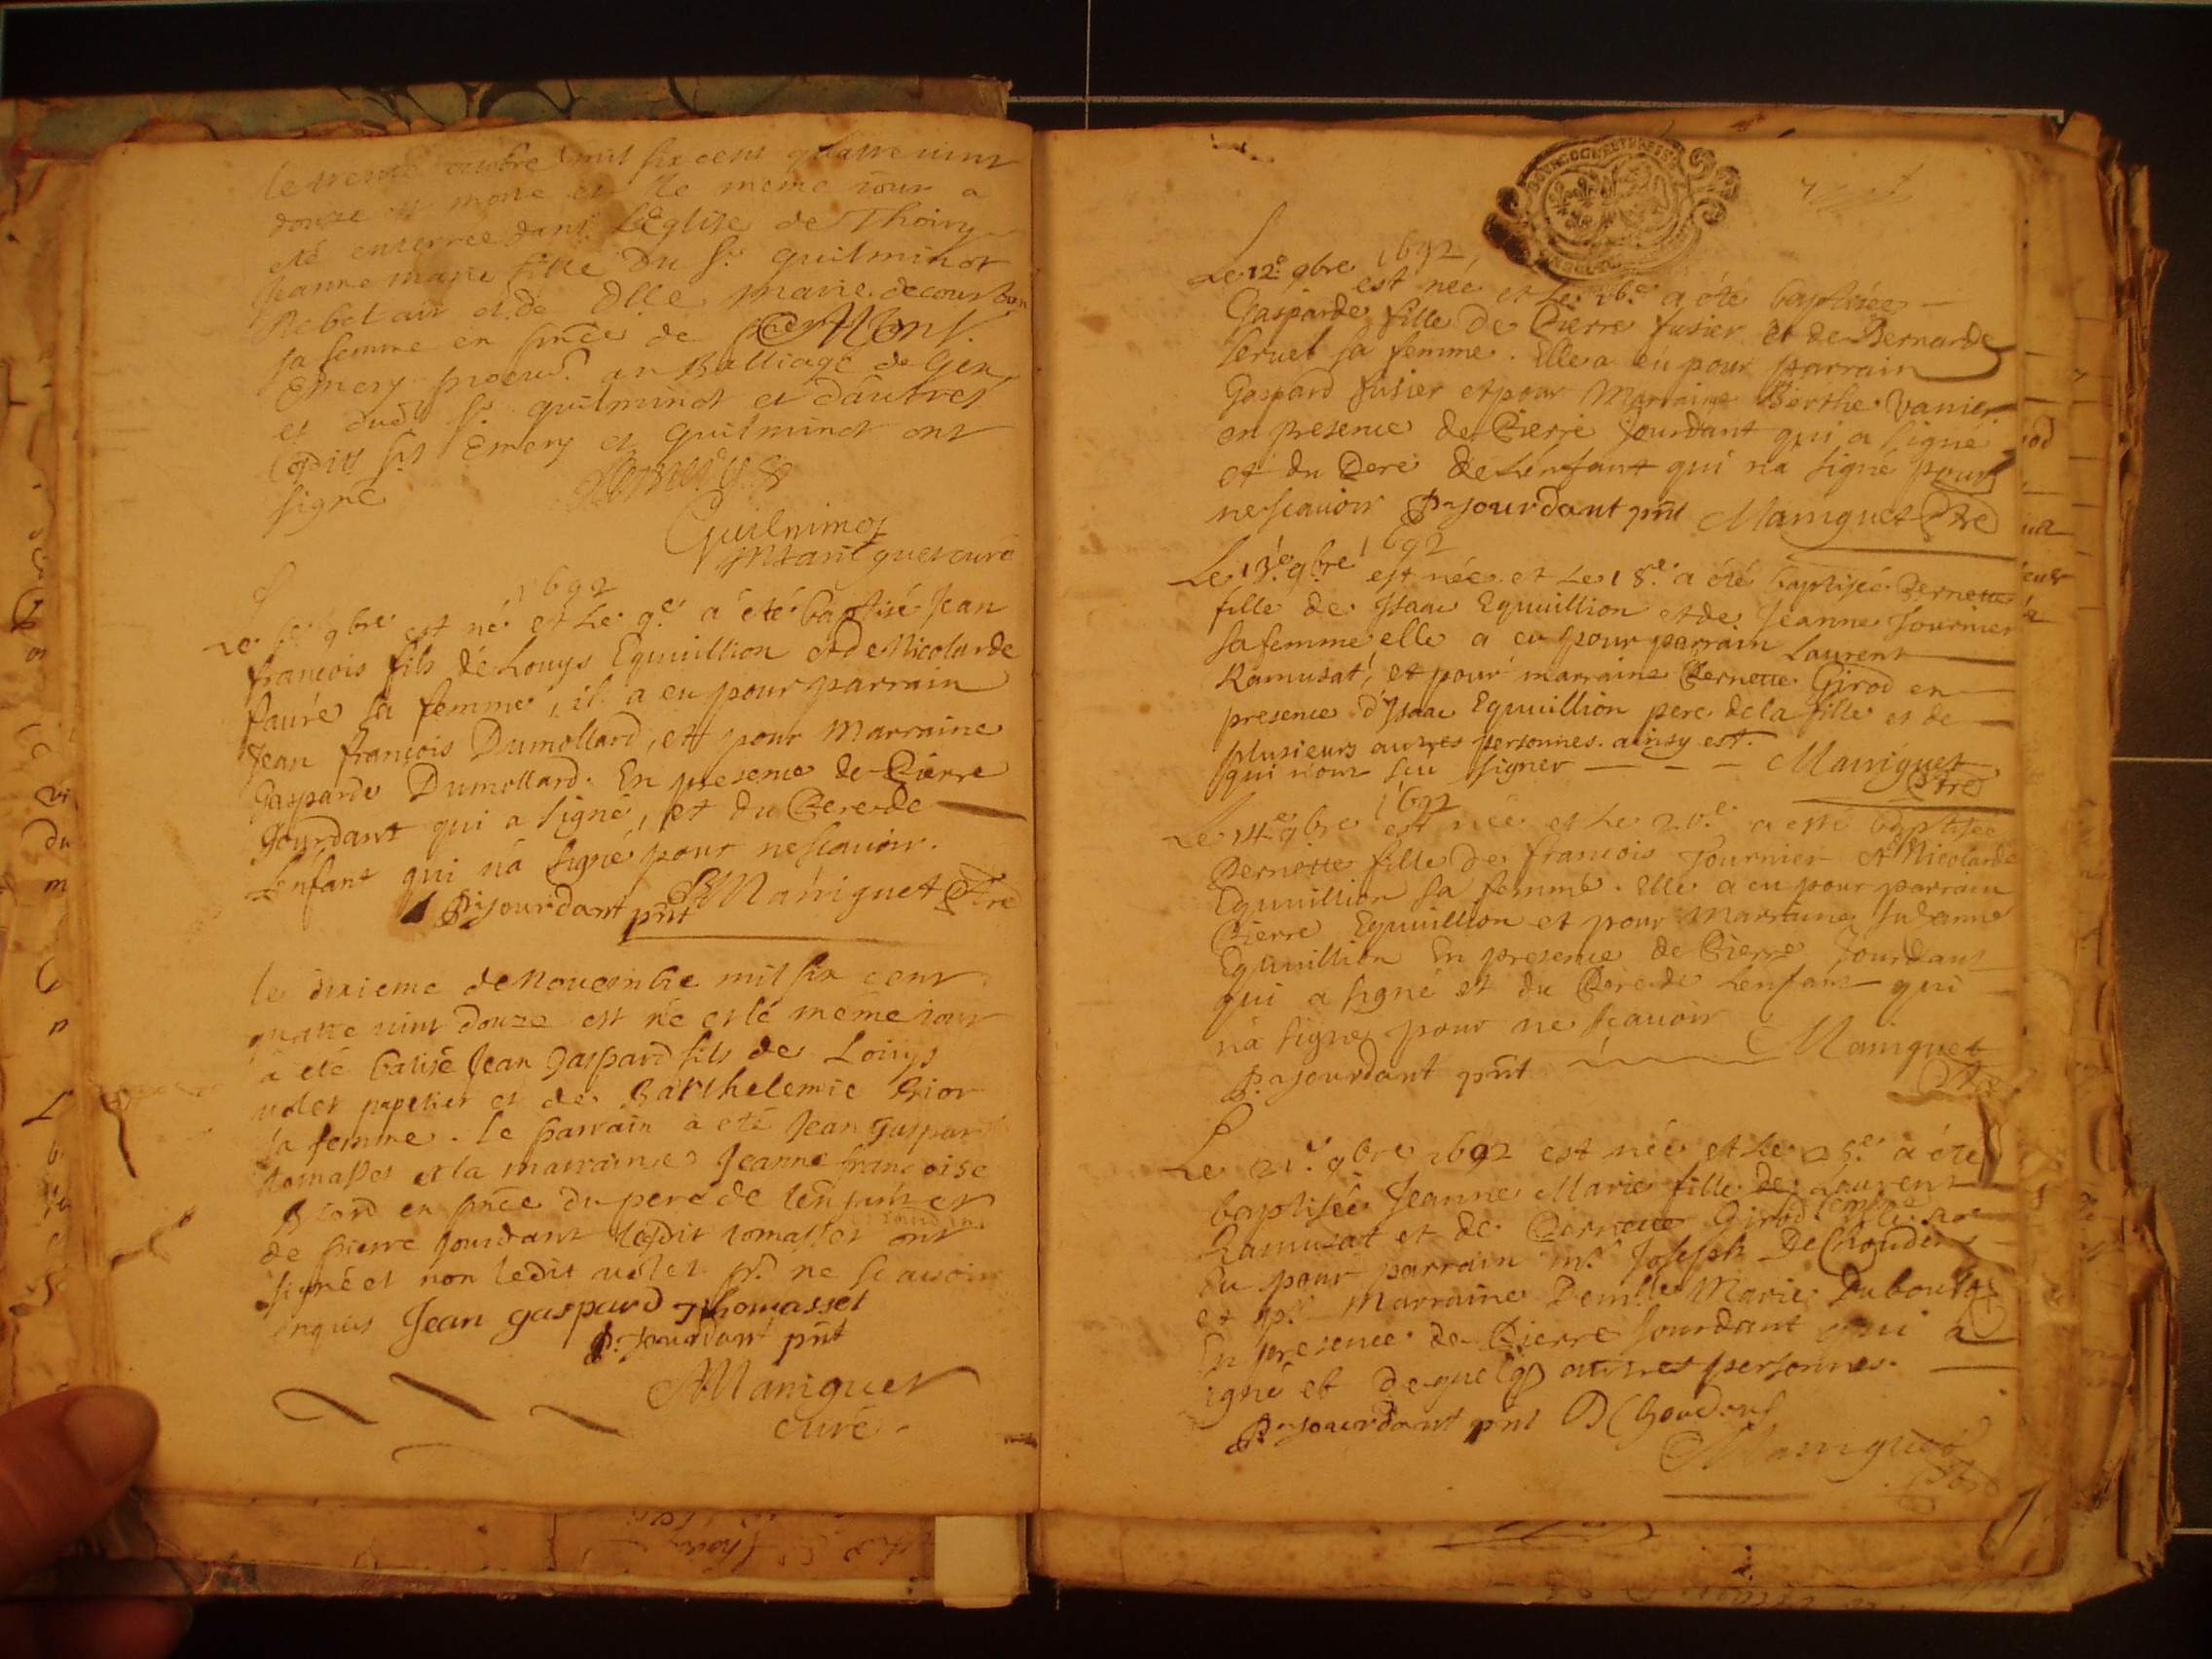 le trente octobre mil six cent quatre vint
douze est morte et le meme iour a
eté enterree dans l'Eglise de Thoiry
Jeanne marie fille du Sr. guilminot
et de Dlle marie
sa femme en pnce de
Emery procur. au Balliage de Gex
et dudt Sr. guilminot et d'autres
Emery et guilminot ont
signé
Guilminot
Maniguet curé
1692
Le 6e 9bre est né et Le 9e a été baptisé Jean
françois fils de Louys Equuillion et de Nicolarde
faure sa femme, il a eu pour parrain
Jean françois Dumollard, et pour Marraine
Gasparde Dumollard. En presence de Pierre
Jourdant qui a signé, et du Pere de
L'enfant qui n'a signé pour ne scauoir.
P. jourdant pnt Maniguet Ptre
le dixieme de Nouembre mil six cent
quatre vint douze est né et le même iour
a eté batisé Jean Gaspard fils de Louys
volet papetier et de Barthelemie
sa femme. le parrain a eté Jean Gaspar
tomasset et la marraine Jeanne françoise
en pnce du pere de l'enfant et
de pierre jourdant ledit tomasset ont
signé et non ledit volet pr. ne scauoir
enquis Jean gaspard Thomasset
P. Jourdant pnt
Maniguet
curé
Le 12e 9bre 1692
est née et Le 16e a été baptisée
Gasparde fille de Pierre fusier et de Bernarde
seruet sa femme. Elle a eu pour parrain
Gaspard fusier et pour Marraine Berthe Vanier
en presence de Pierre Jourdant qui a signé
et du Pere de L'enfant qui n'a signé pour
ne scauoir P. jourdant pnt Maniguet Ptre
1692
Le 13e 9bre est née et Le 18e a été baptisée Pernette
fille de Isaac Equuillion et de Jeanne Fournier
sa femme elle a eu pour parrain Laurent
Ramusat, et pour marraine Pernette Girod en
presence d'Isaac Equuillion pere de la fille et de
plusieurs autres personnes. ainsy est.
qui n'ont sçu signer Maniguet
Ptre
1692
Le 14e 9bre est née et Le 20e a esté baptisée
Pernette fille de francois Fournier et Nicolarde
Equuillion sa femme. Elle a eu pour parrain
Pierre Equuillion et pour Marraine Susanne
Equuillion En presence de Pierre Jourdant
qui a signé et du Pere de L'enfant qui
n'a signé pour ne scauoir
P. jourdant pnt Maniguet
Ptre
Le 21e 9bre 1692 est née et Le 25e a été
baptisée Jeanne Marie fille de Laurent
Ramusat et de Pernette Girod
Eu pour parrain Mr. Joseph
et pr. Marraine Demlle Marie
En presence de Pierre Jourdant qui a
signé et de quelq autres personnes.
P. jourdant pnt
Maniguet
Ptre